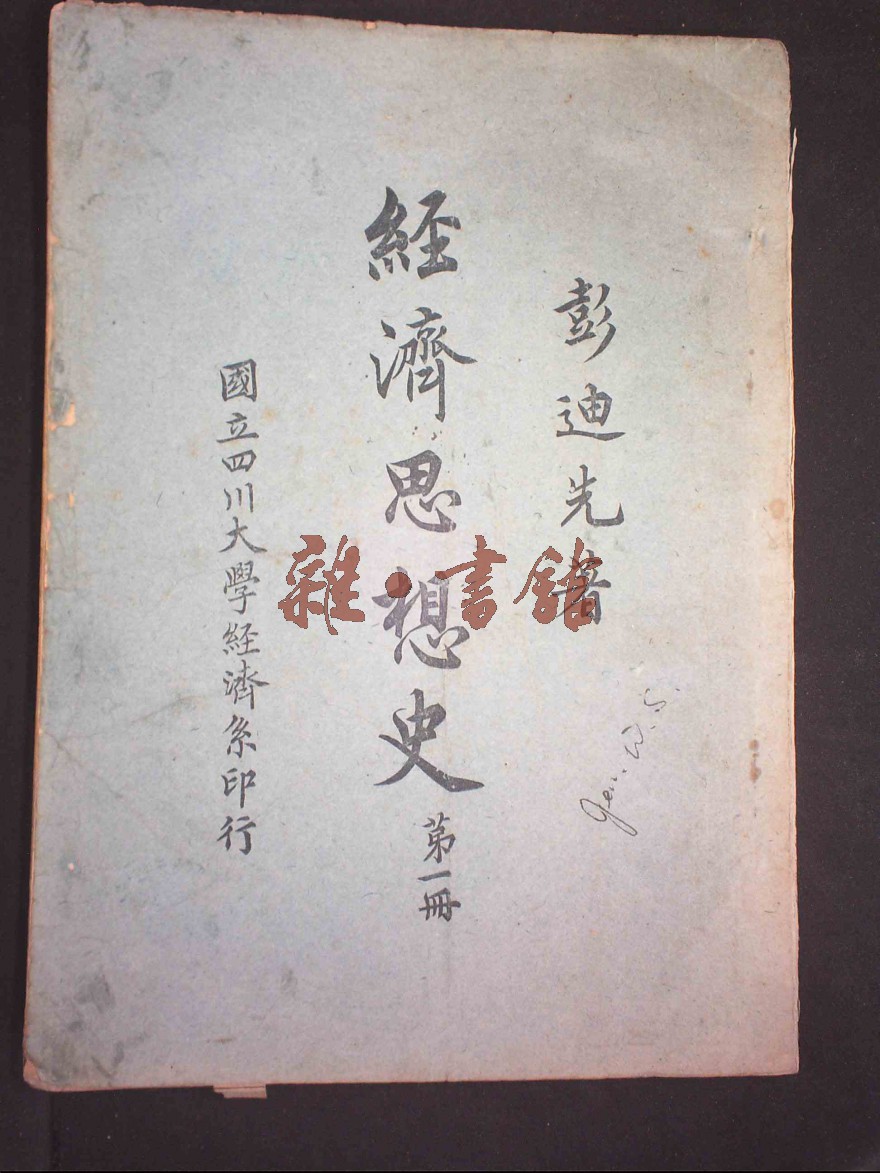 彭迪先著
經濟思想史
第一冊
國立四川大學經濟系印行
雜·書館
Jen. W. S.